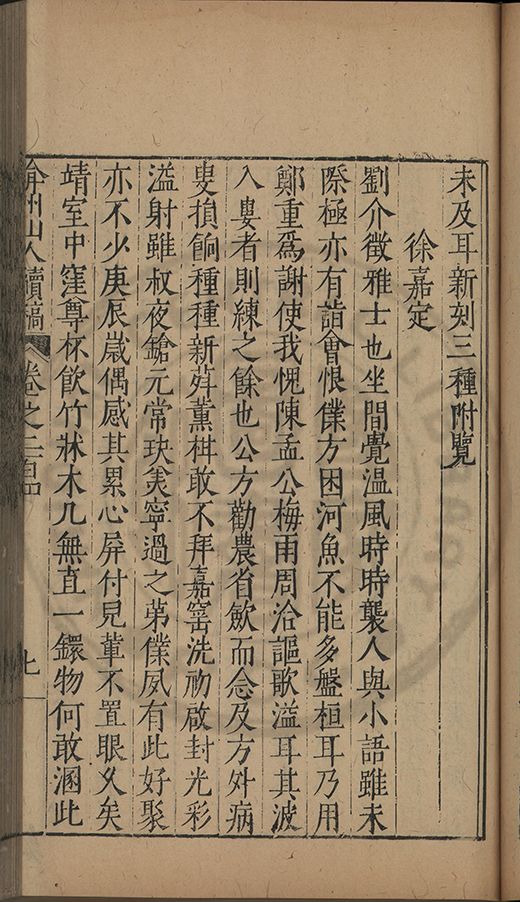 未及耳新刻三種附覽
徐嘉定
劉介徵雅士也坐間覺溫風時時襲人與小語雖未
際極亦有詣會恨僕方困河魚不能多盤桓耳乃用
鄭重爲謝使我愧陳孟公梅雨周洽謳歌溢耳其波
入婁者則練之餘也公方勸農省斂而念及方外病
叟損餉種種新荈薰椒敢不拜嘉窰洗初啟封光彩
溢射雖叔夜鎗元常玦美寧過之第僕夙有此好聚
亦不少庚辰歲偶感其累心屏付兒軰不置眼乆矣
靖室中窪尊杯飲竹牀木几無直一鐶物何敢溷此
弇州山人續稿
卷之二百四
七